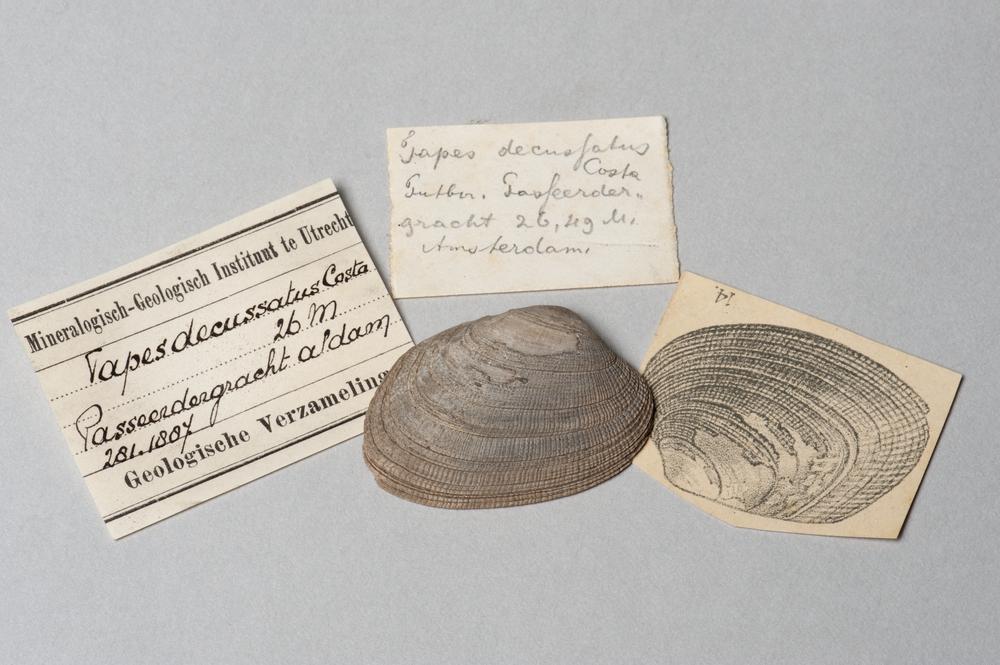 Mineralogisch-Geologisch Instituut te Utrecht
Tapes decussatus Costa
26 M
Passeerdergracht a/dam
281.1887
Geologische Verzameling
Tapes decussatus
Costa
Putbor. Passeerder-
gracht 26,49 M.
Amsterdam.